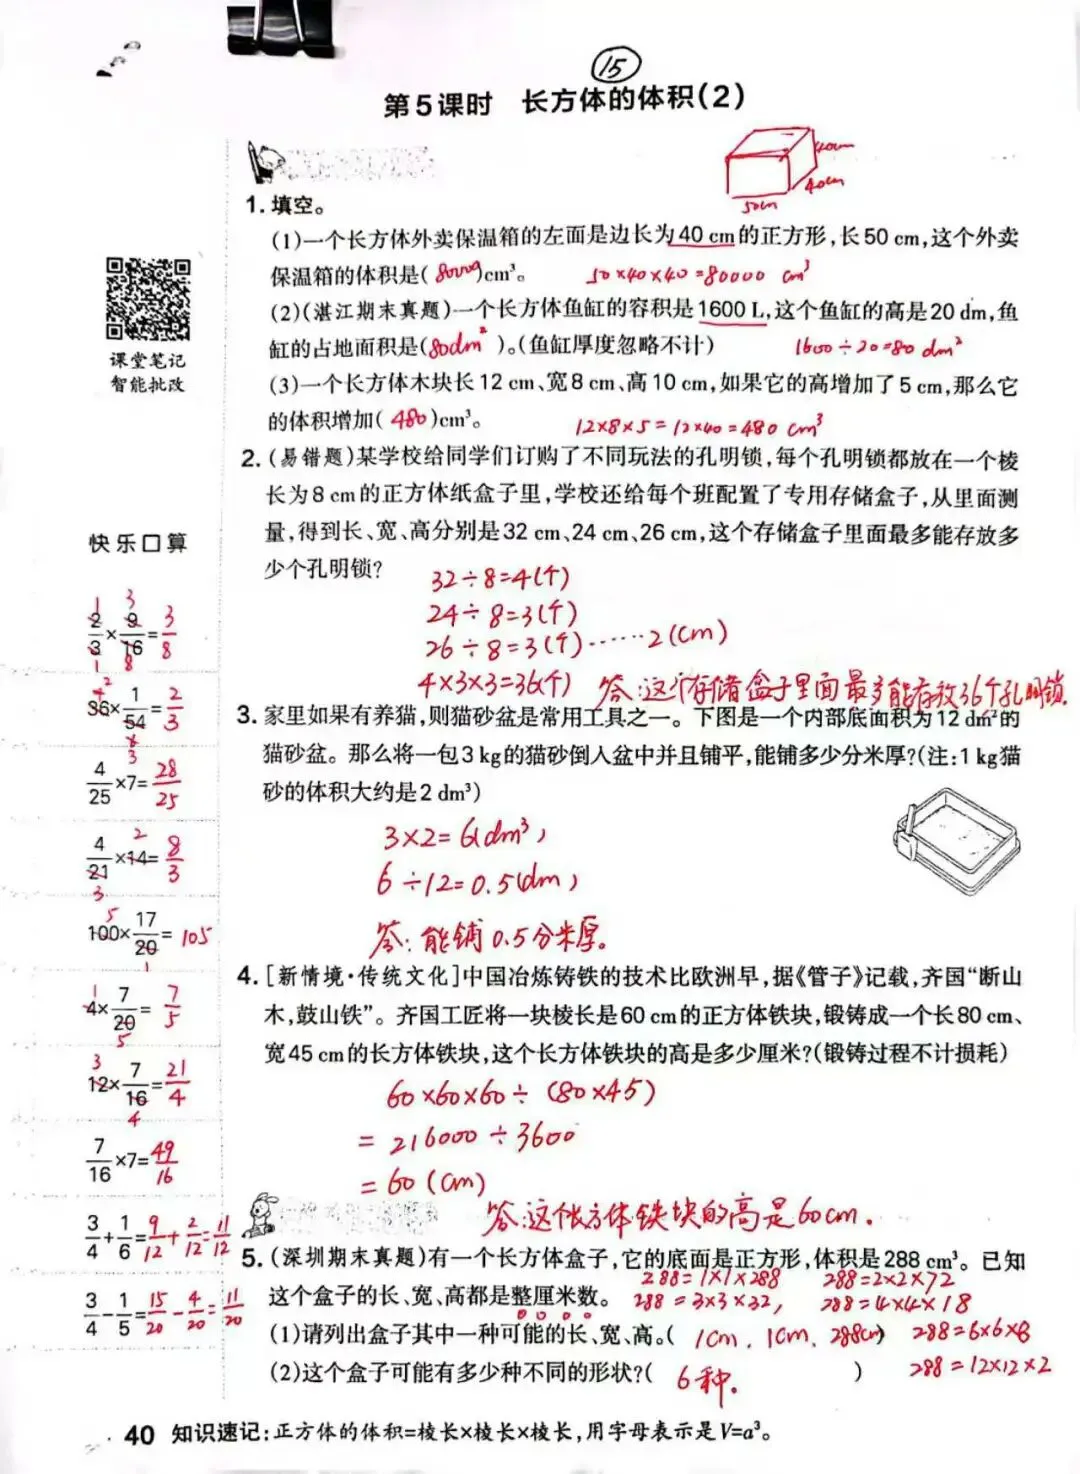 15
第5课时 长方体的体积(2)
40cm
40cm
50cm
1.填空。
(1)一个长方体外卖保温箱的左面是边长为40 cm的正方形,长50 cm,这个外卖
保温箱的体积是(80000)cm³。 50×40×40=80000 cm³
(2)(湛江期末真题)一个长方体鱼缸的容积是1600 L,这个鱼缸的高是20 dm,鱼
缸的占地面积是(80dm²)。(鱼缸厚度忽略不计) 1600÷20=80 dm²
(3)一个长方体木块长12 cm、宽8 cm、高10 cm,如果它的高增加了5 cm,那么它
的体积增加(480)cm³。 12×8×5=12×40=480 cm³
课堂笔记
智能批改
2.(易错题)某学校给同学们订购了不同玩法的孔明锁,每个孔明锁都放在一个棱
长为8 cm的正方体纸盒子里,学校还给每个班配置了专用存储盒子,从里面测
量,得到长、宽、高分别是32 cm、24 cm、26 cm,这个存储盒子里面最多能存放多
少个孔明锁?
32÷8=4(个)
24÷8=3(个)
26÷8=3(个)……2(cm)
4×3×3=36(个) 答:这个存储盒子里面最多能存放36个孔明锁.
3.家里如果有养猫,则猫砂盆是常用工具之一。下图是一个内部底面积为12 dm²的
猫砂盆。那么将一包3 kg的猫砂倒入盆中并且铺平,能铺多少分米厚?(注:1 kg猫
砂的体积大约是2 dm³)
3×2=6(dm³)
6÷12=0.5(dm)
答:能铺0.5分米厚。
4.[新情境·传统文化]中国冶炼铸铁的技术比欧洲早,据《管子》记载,齐国“断山
木,鼓山铁”。齐国工匠将一块棱长是60 cm的正方体铁块,锻铸成一个长80 cm、
宽45 cm的长方体铁块,这个长方体铁块的高是多少厘米?(锻铸过程不计损耗)
60×60×60÷(80×45)
=216000÷3600
=60(cm)
答:这个长方体铁块的高是60cm.
5.(深圳期末真题)有一个长方体盒子,它的底面是正方形,体积是288 cm³。已知
这个盒子的长、宽、高都是整厘米数。 288=1×1×288 288=2×2×72
288=3×3×32, 288=4×4×18
(1)请列出盒子其中一种可能的长、宽、高。(1cm.1cm.288cm) 288=6×6×8
(2)这个盒子可能有多少种不同的形状?(6种.) 288=12×12×2
快乐口算
2/3×9/16=3/8
36×1/54=2/3
4/25×7=28/25
4/21×14=8/3
100×17/20=105
4×7/20=7/5
12×7/16=21/4
7/16×7=49/16
3/4+1/6=9/12+2/12=11/12
3/4-1/5=15/20-4/20=11/20
40 知识速记:正方体的体积=棱长×棱长×棱长,用字母表示是V=a³。